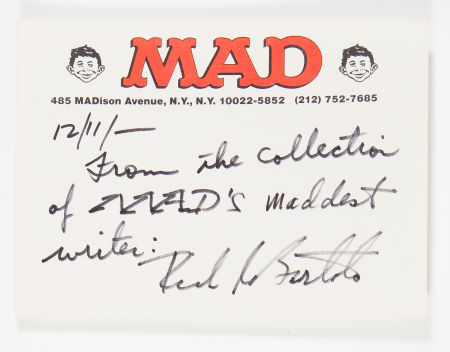 MAD
485 MADison Avenue, N.Y., N.Y. 10022-5852 (212) 752-7685
12/11/—
From the collection
of MAD'S maddest
writer:
Dick DeBartolo